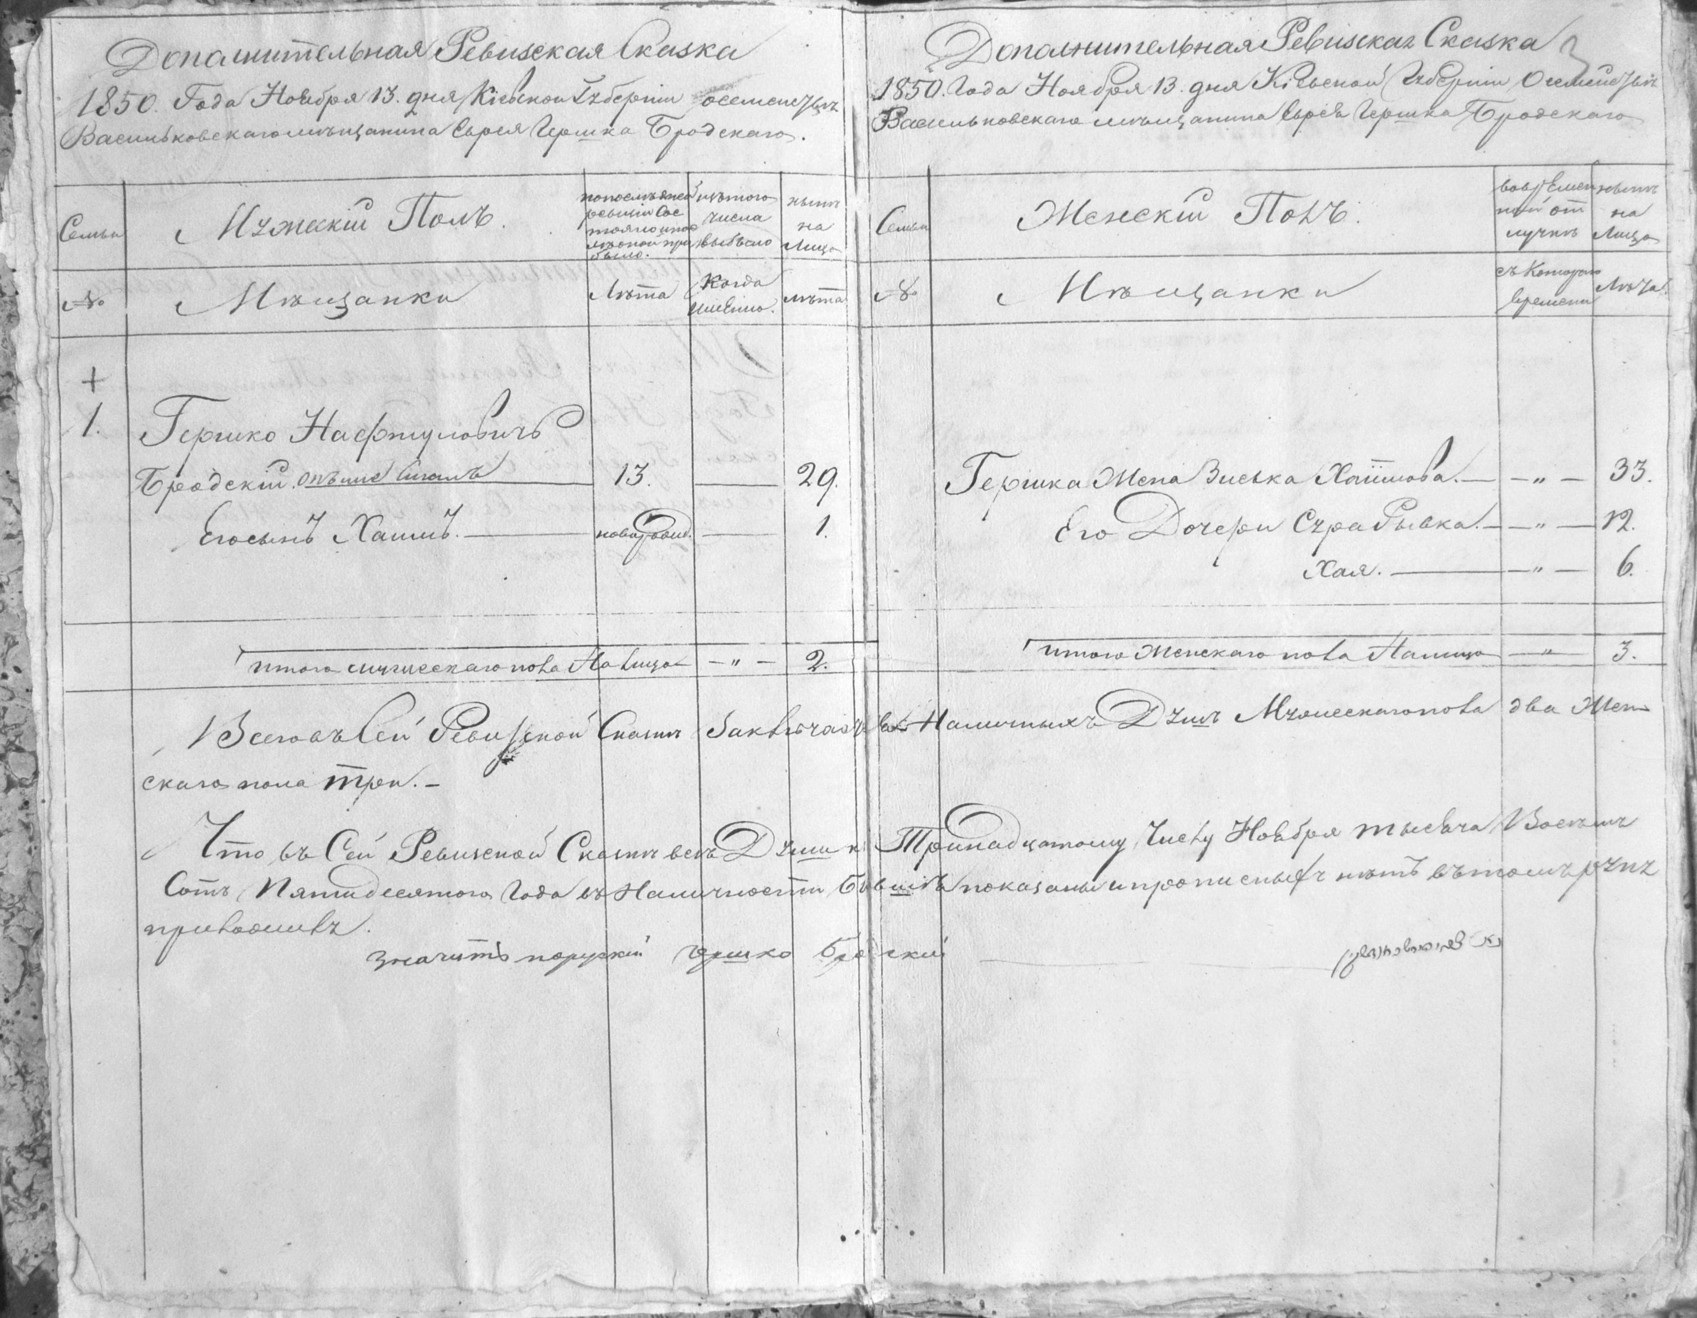 Дополнительная Ревизская Сказка
1850. Года Ноября 13. дня Кіевской Губерніи о семействѣ
Васильковскаго мѣщанина Еврея Гершка Бродскаго.
Семьи
Мужескій Полъ.
по последней ревизіи состояло и после оной прибыло.
изъ того числа выбыло
нынѣ на Лицо
№
Мѣщанки
Лѣта
Когда именно.
лѣта
1.
Гершко Нафтуловичъ
Бродскій
13.
29.
Его сынъ Хаимъ.
новорожд.
1.
итого мужескаго пола На лицо — „ — 2.
Дополнительная Ревизская Сказка
1850. Года Ноября 13. дня Кіевской Губерніи О семействѣ
Васильковскаго мѣщанина Еврея Гершка Бродскаго
Семьи
Женскій Полъ.
во временной отлучкѣ
нынѣ на Лицо
№
Мѣщанки
съ Котораго времени
Лѣта.
Гершка Жена Зиська Хаимова. — „ — 33.
Его Дочери Сура Рывка. — „ — 12.
Хая. — „ — 6.
итого Женскаго пола На лицо — „ — 3.
Всего въ Сей Ревизской Сказкѣ Заключается Наличныхъ Душъ Мужескаго пола два Жен-
скаго пола три. –
Что въ Сей Ревизской Сказкѣ всѣ Души к Тринадцатому Числу Ноября тысяча Восемь
Сотъ Пятидесятого Года въ Наличности Бывшія показаны и прописныхъ нѣтъ въ томъ руку
приложилъ.
значитъ поруский Гершко Бродский